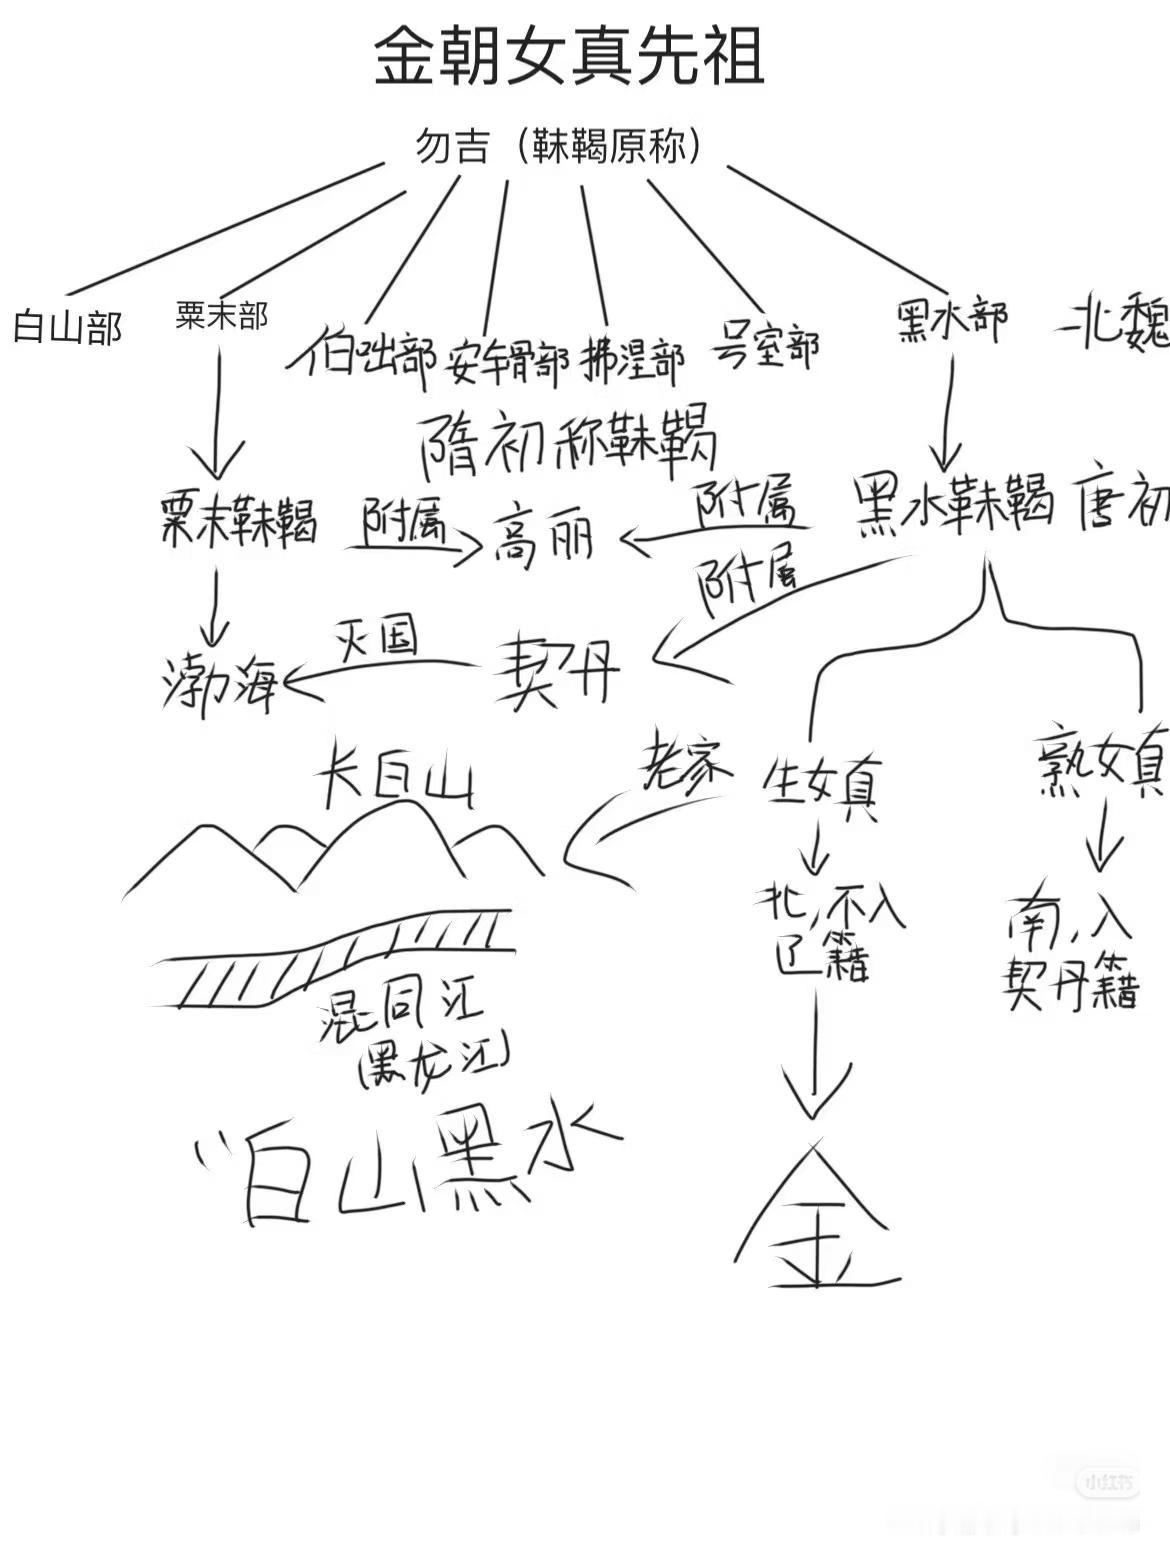 金朝女真先祖
勿吉（靺鞨原称）
白山部 粟末部 伯咄部 安车骨部 拂涅部 号室部 黑水部 北魏
隋初称靺鞨
粟末靺鞨 附属 高丽 附属 黑水靺鞨 唐初
附属
渤海 灭国 契丹
长白山 老家 生女真 熟女真
北,不入
辽籍
南,入
契丹籍
混同江
(黑龙江)
"白山黑水
金
小红书